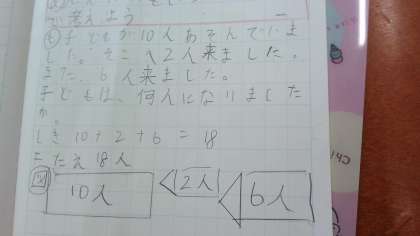 で考えよう
子どもが10人あそんでいま
した。そこへ2人来ました。
また、6人来ました。
子どもは、何人になりました
か。
しき 10+2+6=18
こたえ 18人
図 10人 2人 6人